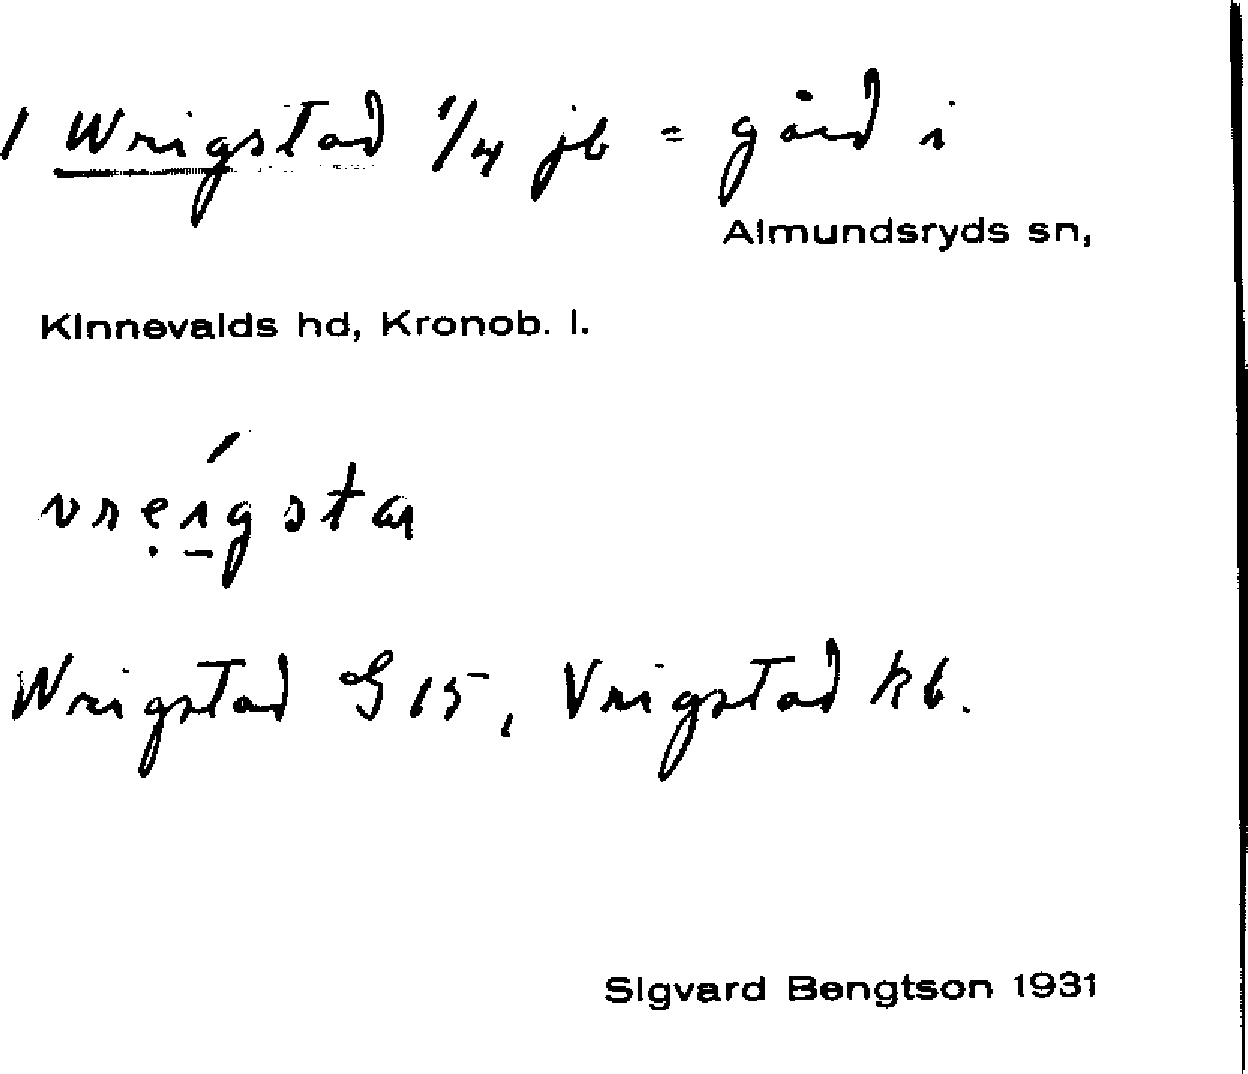 1 Wrigstad 1/4 jb = gård i
Almundsryds sn,
Kinnevalds hd, Kronob. l.
vrẹi̱gsta
Wrigstad G 15, Vrigstad kb.
Sigvard Bengtson 1931